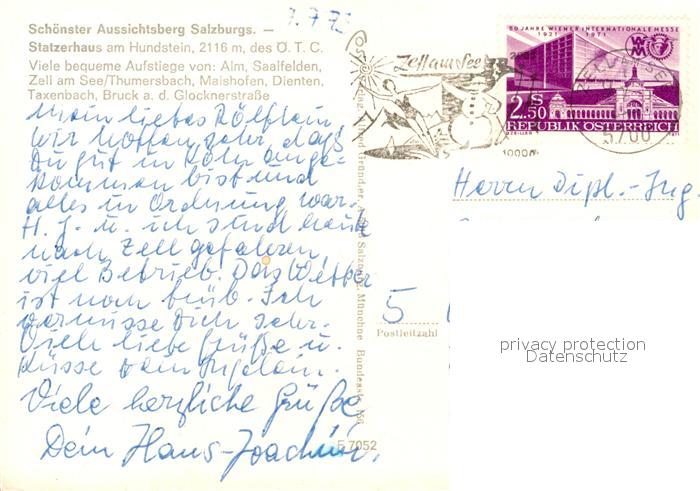 7.7.72
Schönster Aussichtsberg Salzburgs. —
Statzerhaus am Hundstein, 2116 m, des Ö. T. C.
Viele bequeme Aufstiege von: Alm, Saalfelden,
Zell am See/Thumersbach, Maishofen, Dienten,
Taxenbach, Bruck a. d. Glocknerstraße
Mein liebes Rölflein,
Wir hoffen sehr, daß
Du gut in Köln ange-
kommen bist und
alles in Ordnung war.
H. J. u. ich sind heute
nach Zell gefahren,
viel Betrieb. Das Wetter
ist noch trüb. Ich
vermisse Dich sehr.
Viele liebe Grüße u.
Küsse Dein
Viele herzliche Grüße
Dein Hans-Joachim.
F 7052
Zell am See
50 JAHRE WIENER INTERNATIONALE MESSE
1921 1971
S
2.50
REPUBLIK ÖSTERREICH
5700
Herrn Dipl.-Ing.
5
Postleitzahl
privacy protection
Datenschutz